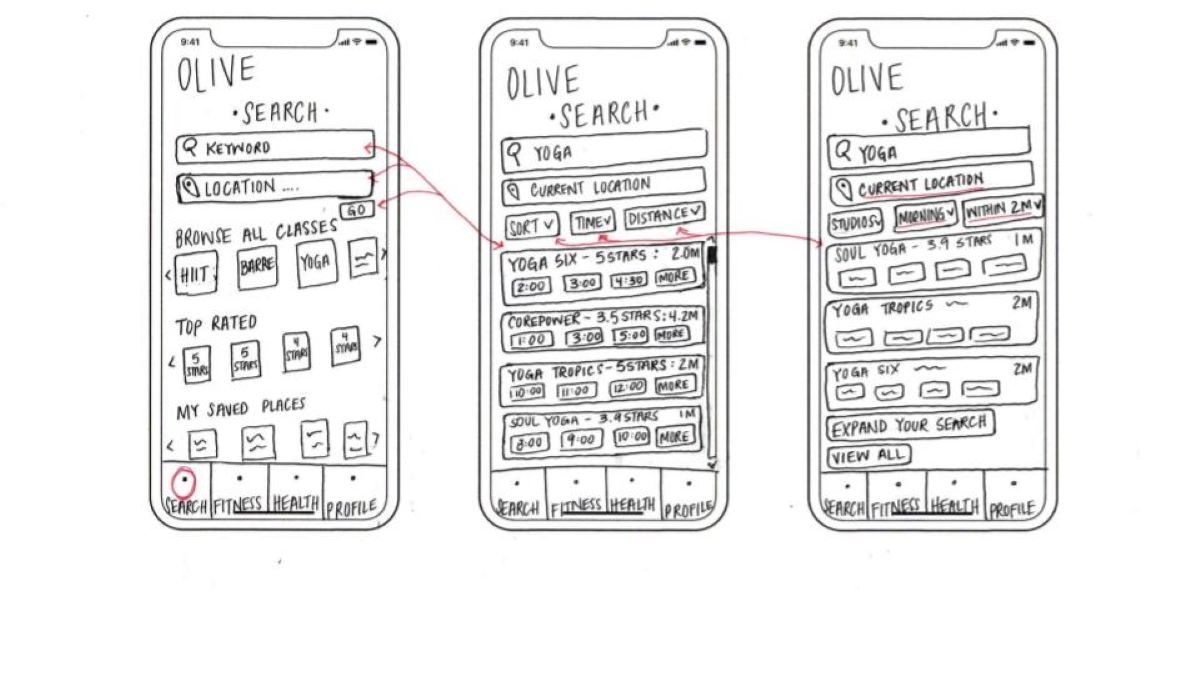 9:41
OLIVE
• SEARCH •
KEYWORD
LOCATION ....
GO
BROWSE ALL CLASSES
HIIT BARRE YOGA
TOP RATED
5 STARS 5 STARS 4 STARS 4 STARS
MY SAVED PLACES
SEARCH FITNESS HEALTH PROFILE
9:41
OLIVE
• SEARCH •
YOGA
CURRENT LOCATION
SORT TIME DISTANCE
YOGA SIX - 5 STARS : 2.0M
2:00 3:00 4:30 MORE
COREPOWER - 3.5 STARS: 4.2M
1:00 3:00 5:00 MORE
YOGA TROPICS - 5 STARS : 2M
10:00 11:00 12:00 MORE
SOUL YOGA - 3.9 STARS 1M
8:00 9:00 10:00 MORE
SEARCH FITNESS HEALTH PROFILE
9:41
OLIVE
• SEARCH •
YOGA
CURRENT LOCATION
STUDIOS MORNING WITHIN 2M
SOUL YOGA - 3.9 STARS 1M
YOGA TROPICS 2M
YOGA SIX 2M
EXPAND YOUR SEARCH
VIEW ALL
SEARCH FITNESS HEALTH PROFILE